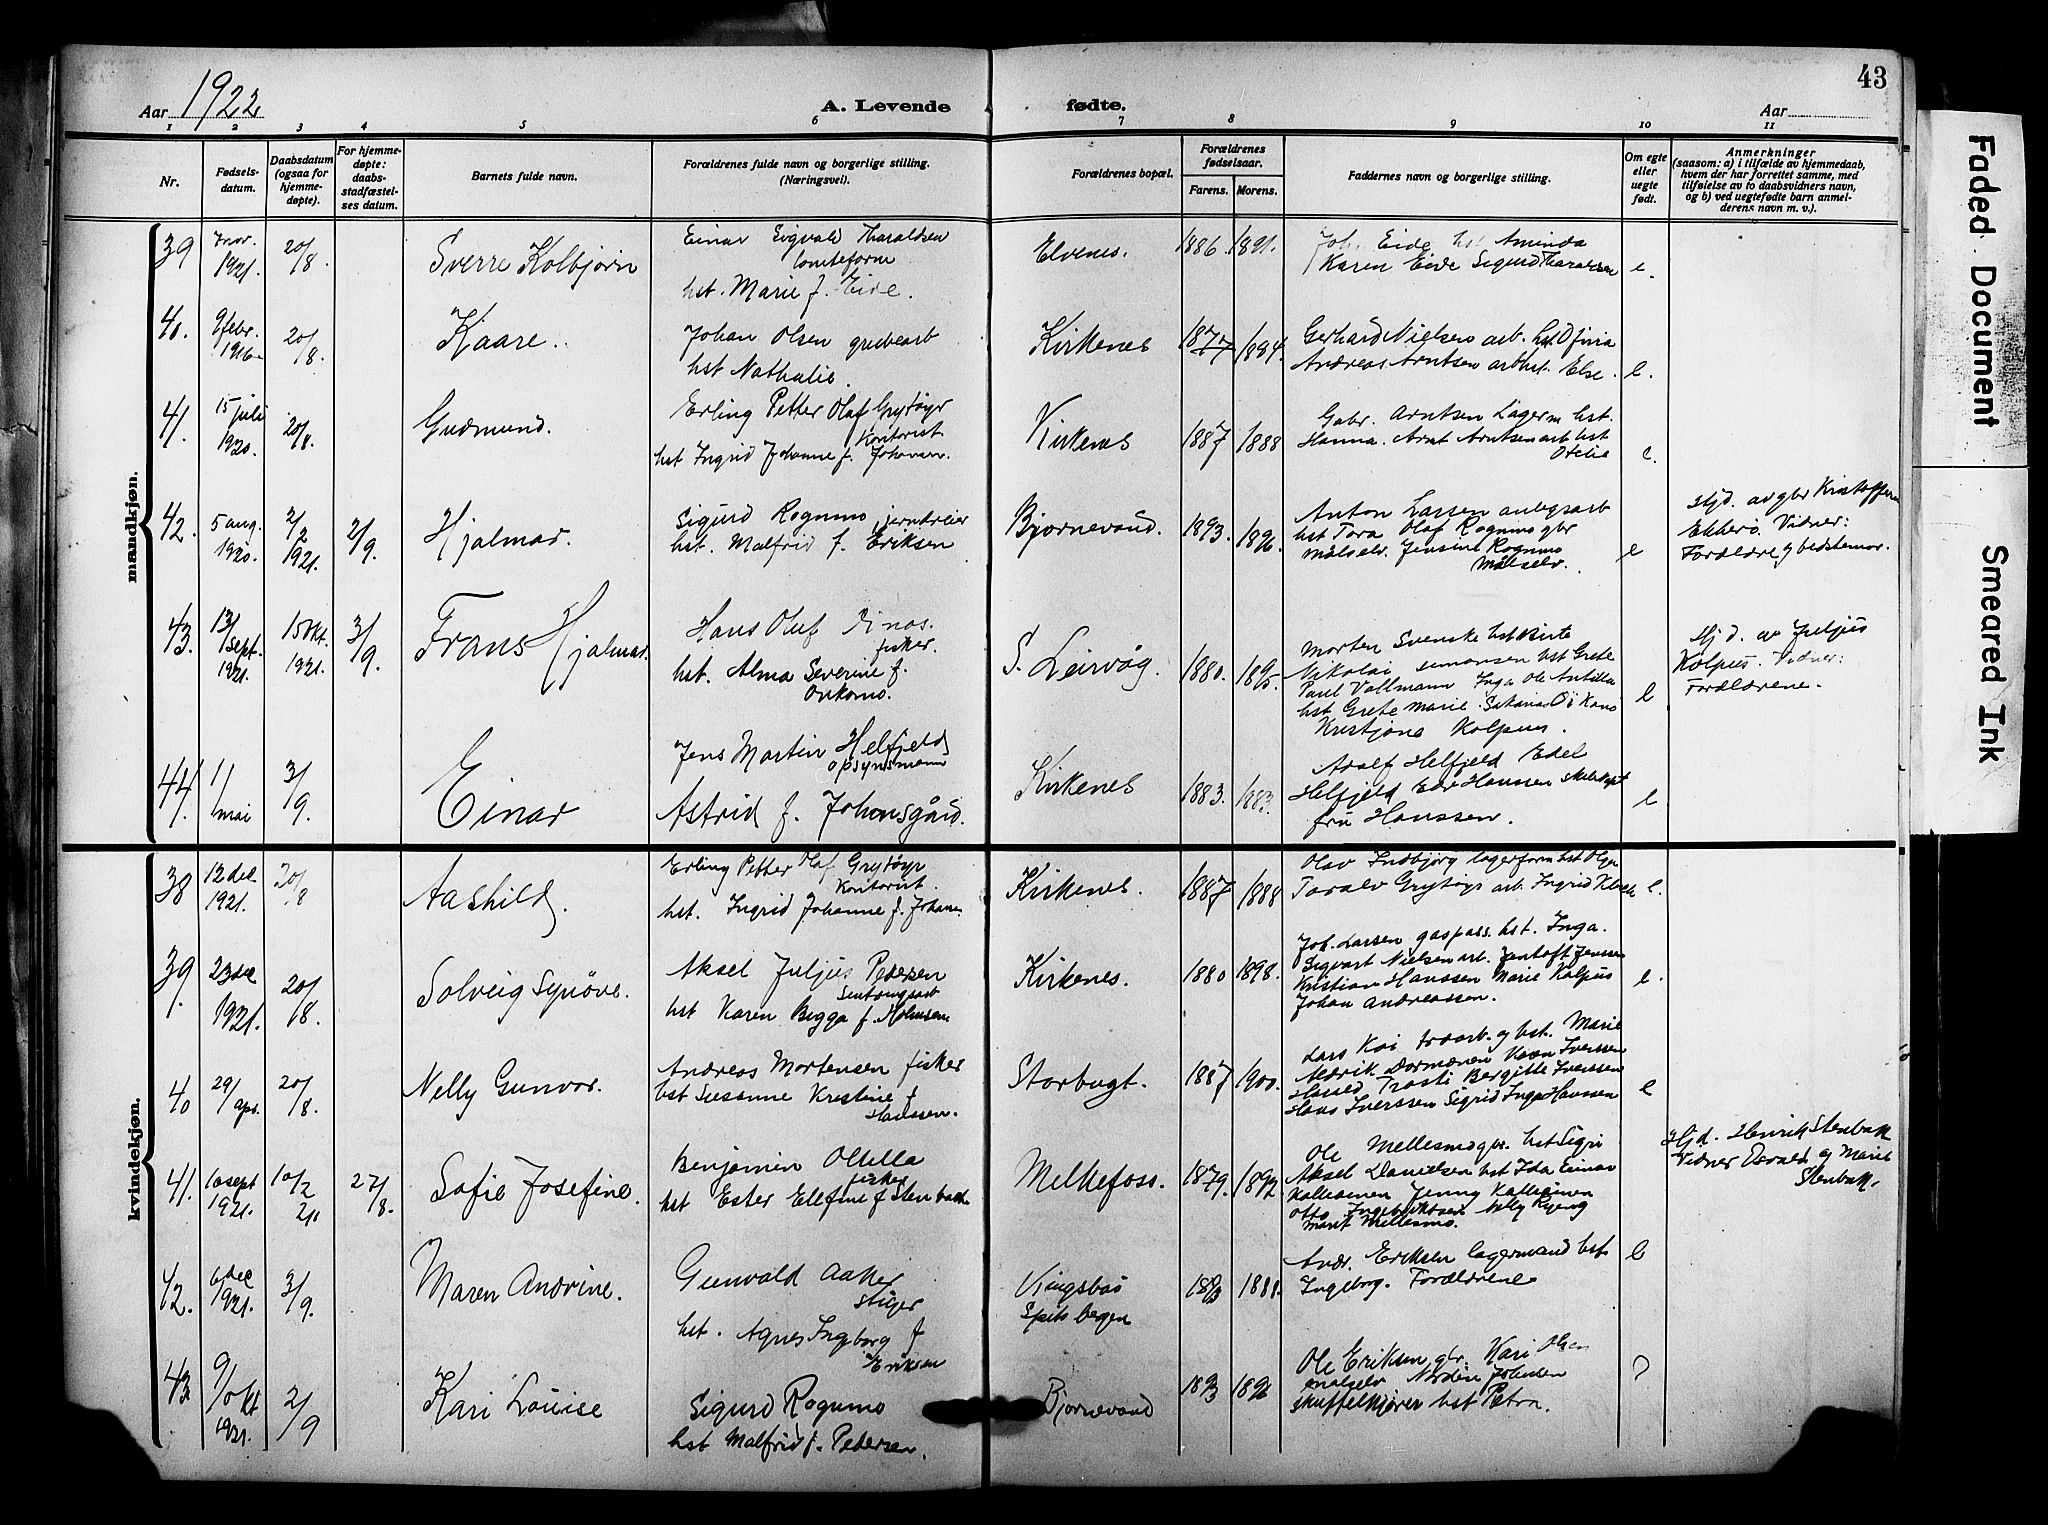 Aar 1922
A. Levende fødte.
Aar
43
1 2 3 4 5 6 7 8 9 10 11
Nr.
Fødsels-
datum.
Daabsdatum
(ogsaa for
hjemme-
døpte).
For hjemme-
døpte:
daabs-
stadfæstel-
ses datum.
Barnets fulde navn.
Forældrenes fulde navn og borgerlige stilling.
(Næringsvei).
Forældrenes bopæl.
Forældrenes
fødselsaar.
Farens. Morens.
Faddernes navn og borgerlige stilling.
Om egte
eller
uegte
født.
Anmerkninger
(saasom: a) i tilfælde av hjemmedaab,
hvem der har forrettet samme, med
tilføielse av to daabsvidners navn,
og b) ved uegtefødte barn anmel-
derens navn m. v.).
mandkjøn.
39 7 nov. 1921. 20/8 Sverre Kolbjørn
Einar Sigvald Tharaldsen
hst. Marie f. Eide.
Elvenes. 1886 1891.
Joh. Eide hst Aminda
Karen Eide Sigurd Tharaldsen e.
40. 9 febr. 1916 20/8. Kaare.
Johan Olsen grubearb
hst Nathalie.
Kirkenes 1877 1894.
Gerhard Nielsen arb. hst
Andreas Arntsen arb hst. Else. e.
41. 15 juli 1920. 20/8. Gudmund.
Erling Petter Olaf Grytøyr
Kontorist.
hst Ingrid Johanne f. Johansen.
Kirkenes 1887 1888
Gabr. Arntsen Lagerm hst.
Hanna. Arnt Arntsen arb hst
Otelie e.
42. 5 aug. 1920. 2/2 1921. 2/9. Hjalmar.
Sigurd Rognmo jerndreier
hst. Malfrid f. Eriksen
Bjørnevand. 1893. 1896.
Anton Larsen anlegsarb
hst Tora Olaf Rognmo gbr
Målselv. Jensine Rognmo
Målselv. e
Hjd. av gbr Kristoffersen
Ekkerö. Vidner:
Forældre og bedstemor.
43. 13/ Sept. 1921. 15 Okt. 1921. 3/9. Frans Hjalmar.
Hans Oluf
fisker.
hst. Alma Severine f.
Onkamo.
S. Leirvåg. 1880. 1895.
Morten Svenske hst Birte
Nikolai Simonsen hst Grete
Paul Vollmann Inga Ole Antilla
hst Grete Marie
Kristjane Kolpus. e
Hjd. av Juljus
Kolpus. Vidner:
Forældrene.
44. 1/ mai 3/9. Einar
Jens Martin Helfjeld
opsynsmann
Astrid f. Johansgård.
Kirkenes 1883. 1883.
Adolf Helfjeld Edel
Helfjeld Hanssen
fru Hanssen. e
kvindekjøn.
38 12 dec. 1921. 20/8 Aashild.
Erling Petter Olaf Grytøyr
Kontorist.
hst. Ingrid Johanne f. Johans
Kirkenes. 1887 1888
Olav Indbjörg lagerform hst Olga
Toralv Grytøyr arb. Ingrid e.
39. 23 dec 1921. 20/8. Solveig Synöve.
Aksel Juljus Pedersen
hst Karen Bigga f. Holmsen
Kirkenes. 1880 1898.
Joh. Larsen gaspass. hst. Inga.
Sigvart Nielsen arb. Jentoft Jenssen
Kristian Hanssen Marie Kolpus
Johan Andreassen. e.
40 29/ apr. 20/8. Nelly Gunvor.
Andreas Mortensen fisker
hst Susanne Kristine f
Hanssen.
Storbugt. 1887 1900.
Lars Kai hst. Marie
Bergitte Iverssen
Hans Iverssen Sigrid Inga Hanssen e
41. 10 sept 1921. 10/2 21. 27/8. Sofie Josefine.
Benjamin Ollila
fisker
hst Ester Elefine f Stenbak
Melkefoss. 1879. 1892.
Ole Mellesmo gbr. hst Sigri
Aksel Danielsen hst Ida Einar
Kalleainen Jenny Kalleainen
Otto Ingebriktsen Nelly Ryeng
Marit Mellesmo.
Hjd. Henrik Stenbakk
Vidner Osvald og Marit
Stenbakk.
42. 6 dec 1921. 3/9. Maren Andrine.
Gunvald Aaker
Stiger
hst. Agnes Ingeborg f
Eriksen
Kingsbai
Spitsbergen 1893 1888.
Andr. Eriksen lagermand hst.
Ingeborg. Forældrene e
43. 9/ Okt 1921. 2/9 Kari Louise
Sigurd Rognmo
hst Malfrid f. Petersen.
Bjørnevand 1893 1896
Ole Eriksen gbr. Kari Olsen
Målselv Nordin Johansen
skuffelkjører hst Petra. ?
Faded Document
Smeared Ink